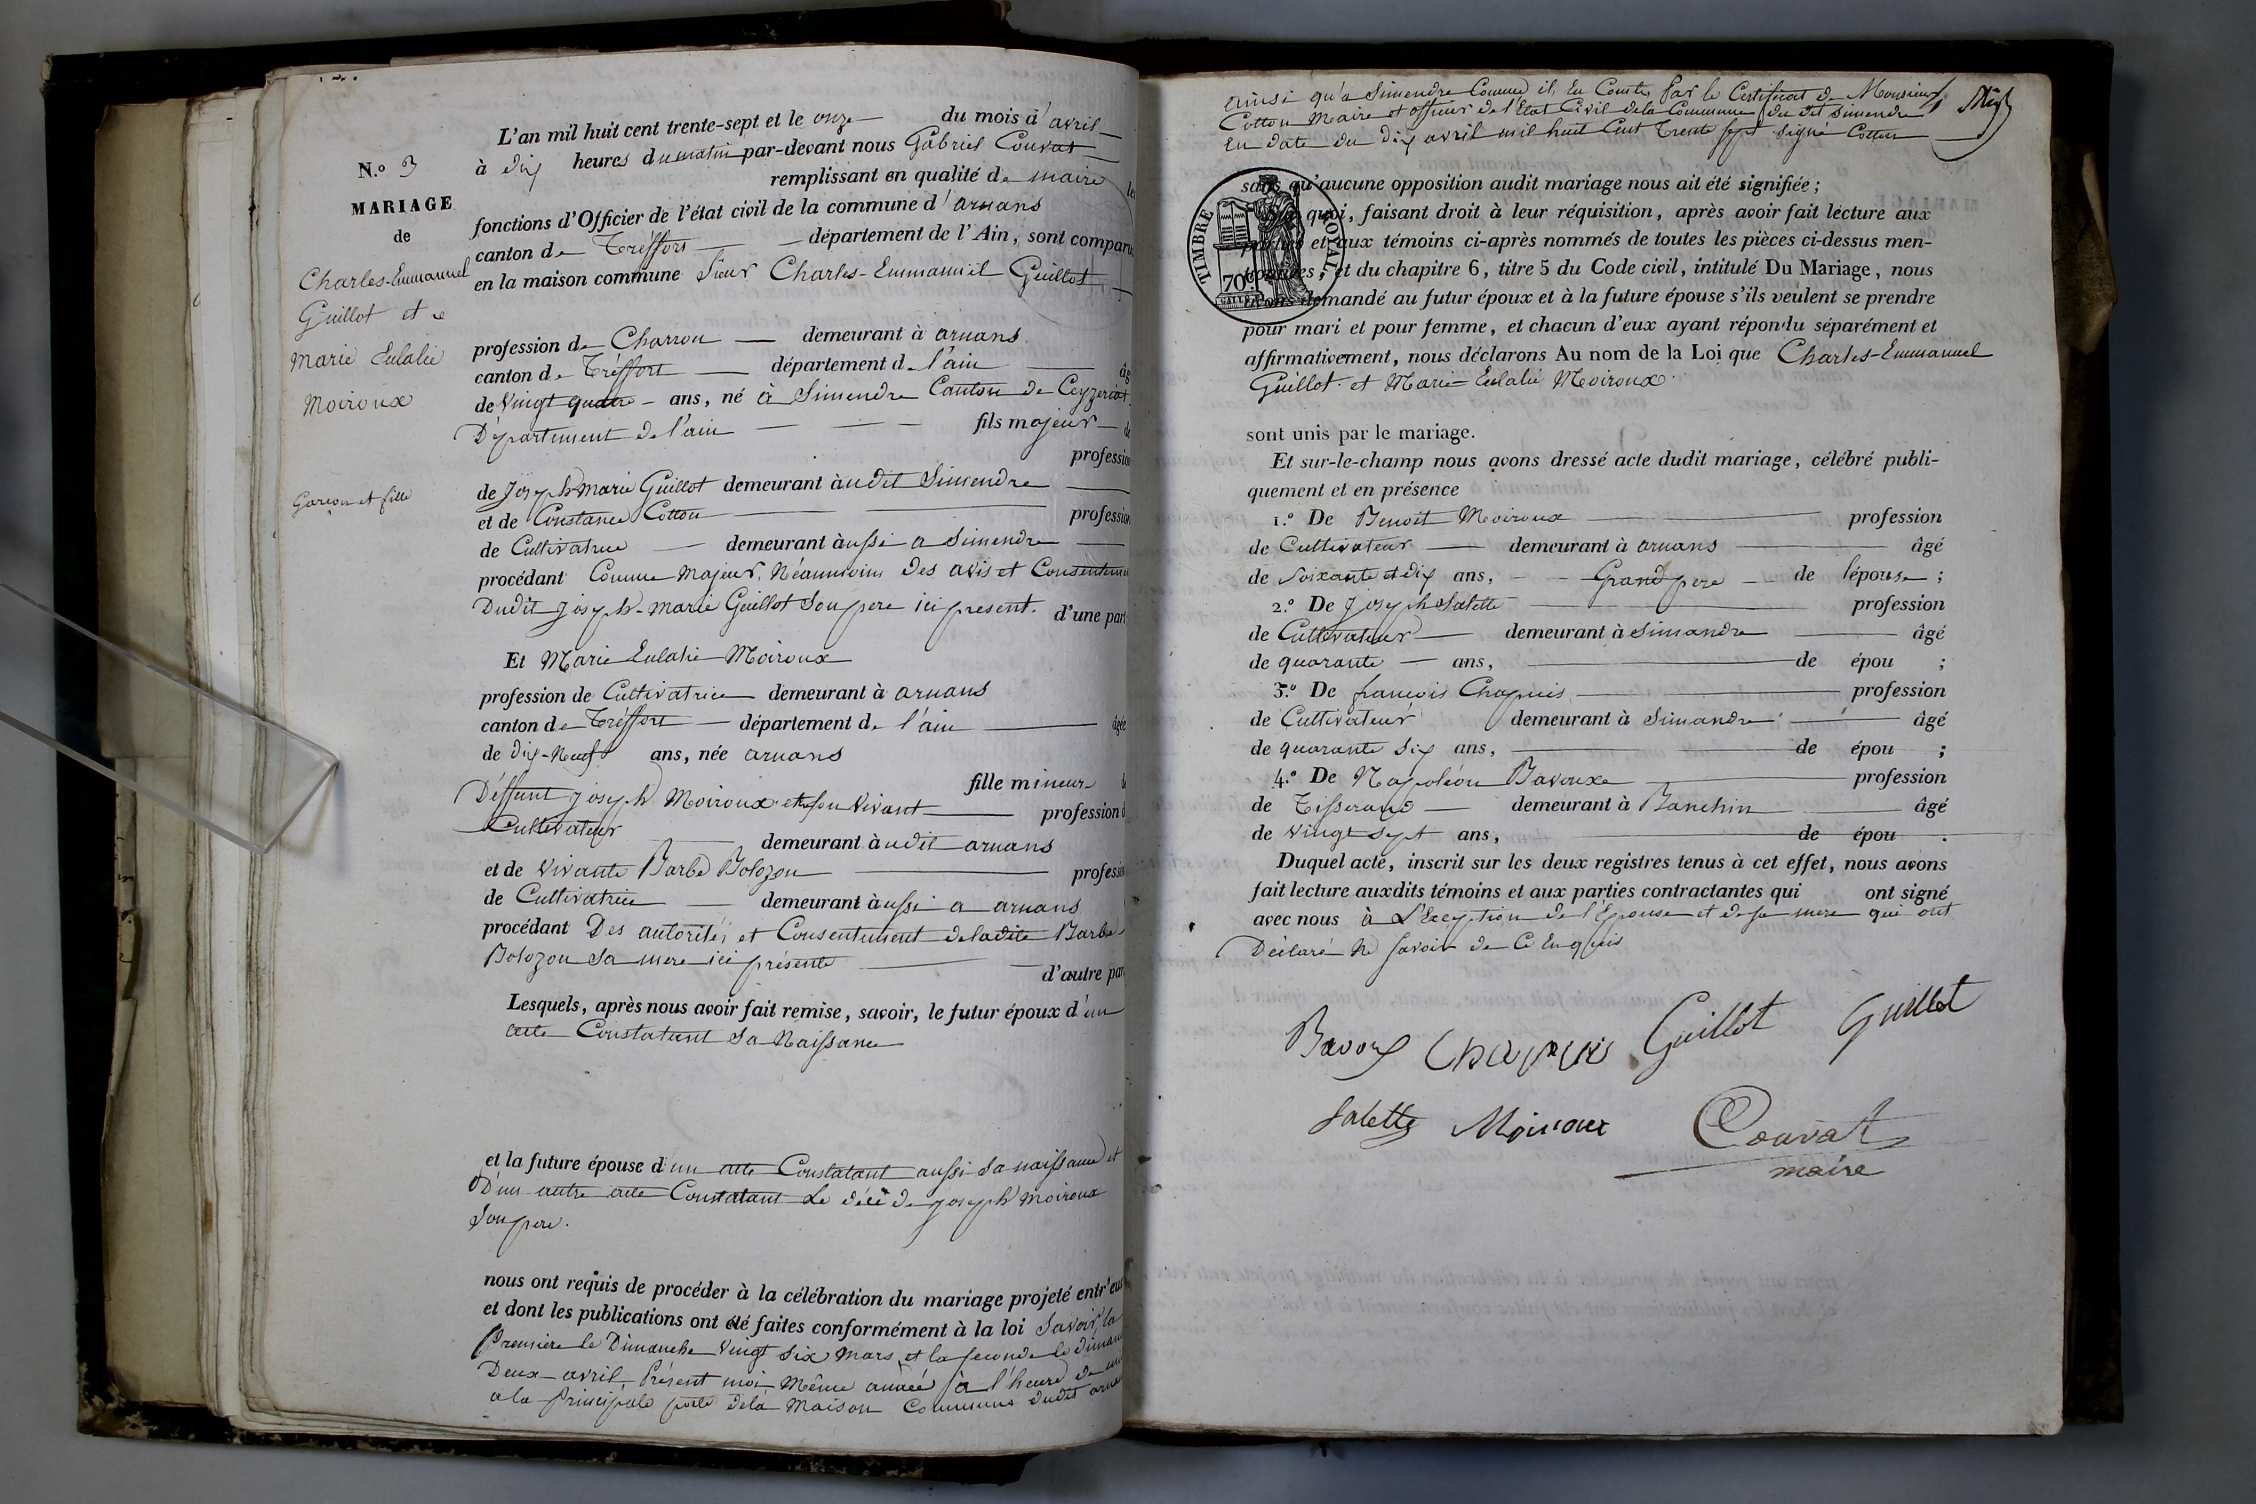 N.º 3
MARIAGE
de
Charles-Emmanuel
Guillot et
Marie Eulalie
Moiroux
Garçon et fille
L'an mil huit cent trente-sept et le onze du mois d'avril
à dix heures du matin par-devant nous Gabriel Couvat
remplissant en qualité de maire les
fonctions d'Officier de l'état civil de la commune d'arnans
canton de Tréffort département de l'Ain, sont comparu
en la maison commune Sieur Charles-Emmanuel Guillot
profession de Charron demeurant à arnans
canton de Tréffort département de l'ain âg
de Vingt quatre ans, né à Simendre Canton de Ceyzeriat
Département de l'ain fils majeur de
profession
de Joseph Marie Guillot demeurant audit Simendre
et de Constance Cotton profession
de Cultivatrice demeurant aussi a Simendre
procédant Comme Majeur, Néanmoins des avis et Consentement
Dudit Joseph-Marie Guillot Son pere ici present. d'une part
Et Marie Eulalie Moiroux
profession de Cultivatrice demeurant à arnans
canton de Tréffort département de l'ain âgée
de dix-Neuf ans, née arnans
fille mineure de
Déffunt Joseph Moiroux en son vivant profession d
Cultivateur demeurant audit arnans
et de vivante Barbe Bolozon profession
de Cultivatrice demeurant aussi a arnans
procédant Des autorités et Consentement de ladite Barbe
Bolozon Sa mere ici présente d'autre part
Lesquels, après nous avoir fait remise, savoir, le futur époux d'un
acte Constatant Sa Naissance
et la future épouse d'un acte Constatant aussi Sa naissance et
D'un autre acte Constatant Le décé de Joseph Moiroux
Son pere.
nous ont requis de procéder à la célébration du mariage projeté entr'eux
et dont les publications ont été faites conformément à la loi Savoir, la
Premiere le Dimanche Vingt Six Mars et la Seconde le dimanche
Deux avril Présent moi Même année à l'heure de
a la Principale porte de la Maison Commune dudit arnans
ainsi qu'à Simendre Comme il En Conste Par le Certificat de Monsieur
Cotton Maire et officier de l'Etat Civil de la Commune du dit Simendre
En date du dix avril mil huit Cent Trente Sept Signé Cotton
TIMBRE ROYAL
70
sans qu'aucune opposition audit mariage nous ait été signifiée ;
quoi, faisant droit à leur réquisition, après avoir fait lecture aux
parties et aux témoins ci-après nommés de toutes les pièces ci-dessus men-
tionnées, et du chapitre 6, titre 5 du Code civil, intitulé Du Mariage, nous
avons demandé au futur époux et à la future épouse s'ils veulent se prendre
pour mari et pour femme, et chacun d'eux ayant répondu séparément et
affirmativement, nous déclarons Au nom de la Loi que Charles-Emmanuel
Guillot. et Marie-Eulalie Moiroux.
sont unis par le mariage.
Et sur-le-champ nous avons dressé acte dudit mariage, célébré publi-
quement et en présence
1.º De Benoit Moiroux profession
de Cultivateur demeurant à arnans âgé
de Soixante et dix ans, Grand pere de l'épouse ;
2.º De Joseph Salette profession
de Cultivateur demeurant à Simandre âgé
de quarante ans, de épou ;
3.º De francois Chapuis profession
de Cultivateur demeurant à Simandre âgé
de quarante Six ans, de épou ;
4.º De Napoléon Bavoux profession
de Tisserand demeurant à Banchin âgé
de Vingt Sept ans, de épou .
Duquel acte, inscrit sur les deux registres tenus à cet effet, nous avons
fait lecture auxdits témoins et aux parties contractantes qui ont signé
avec nous à L'Exception de l'Epouse et de sa mere qui ont
Déclaré Ne Savoir de Ce Enquis
Bavoux Chapuis Guillot Guillot
Salette Moiroux Couvat
maire